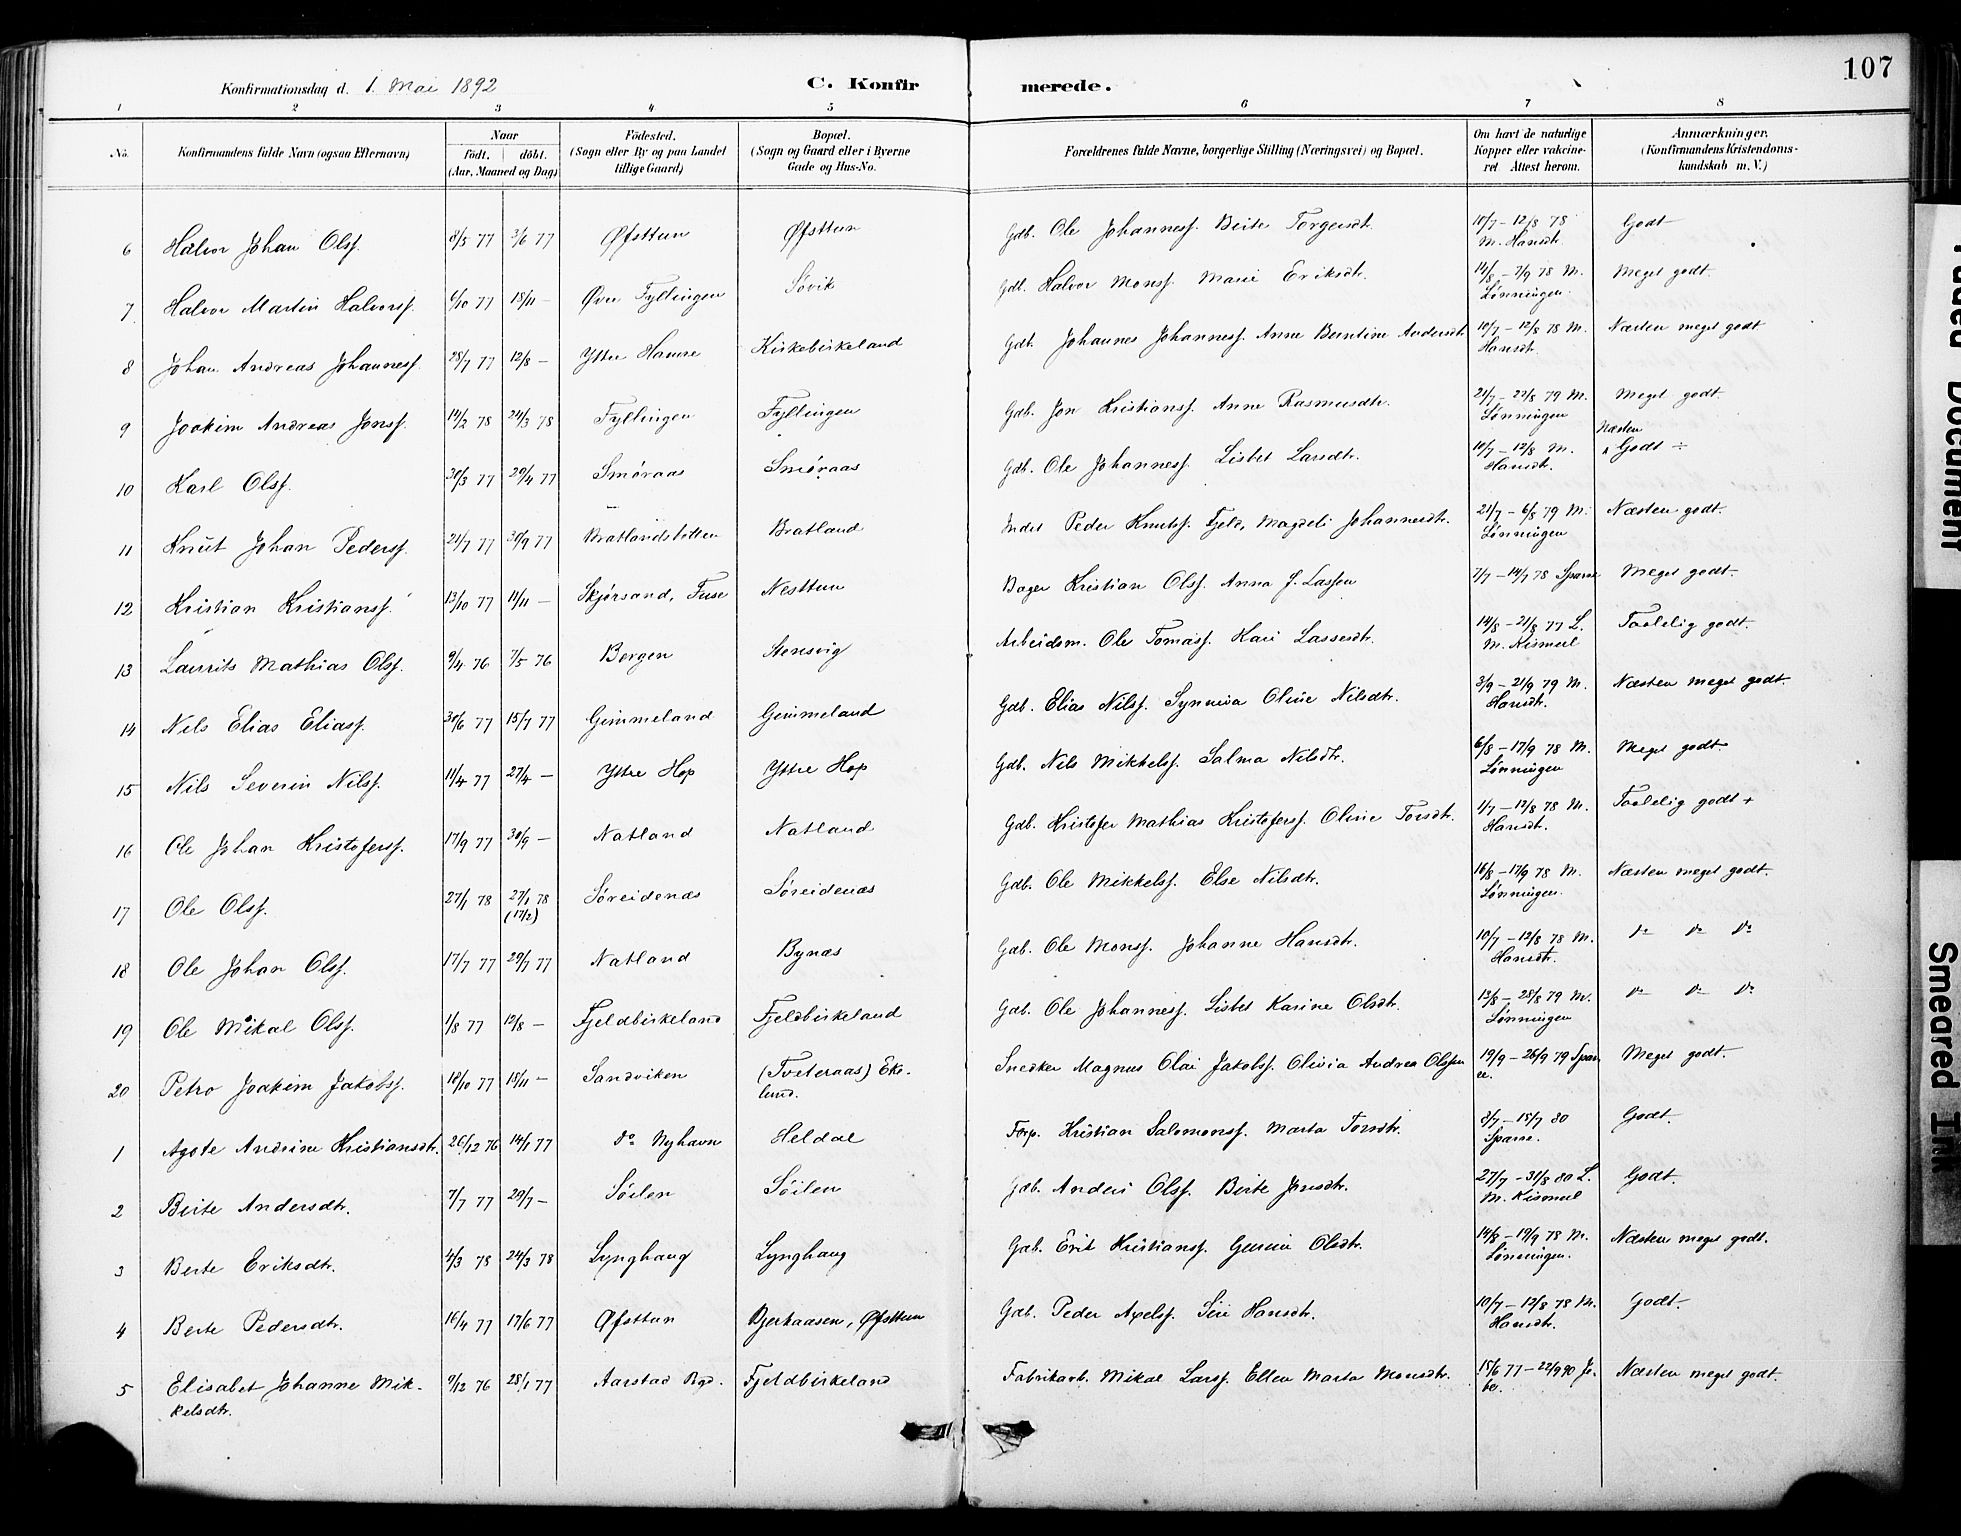 107
Konfirmationsdag d. 1. Mai 1892 C. Konfirmerede.
1 2 3 4 5 6 7 8
No. Konfirmandens fulde Navn (ogsaa Efternavn) Naar födt. döbt. (Aar, Maaned og Dag) Födested. (Sogn eller By og paa Landet tillige Gaard) Bopæl. (Sogn og Gaard eller i Byerne Gade og Hus-No. Forældrenes fulde Navne, borgerlige Stilling (Næringsvei) og Bopæl. Om havt de naturlige Kopper eller vakcineret. Attest herom. Anmærkninger. (Konfirmandens Kristendomskundskab m. V.)
6 Halvor Johan Olsf. 8/5 77 3/6 77 Øfsttun Øfsttun Gdb. Ole Johannesf. Berte Torgersdt. 10/7 – 12/8 78 M. Hansdt. Godt
7 Halvor Martin Halvorsf. 6/10 77 18/11 – Øvre Fyllingen Søvik Gdb. Halvor Monsf. Marie Eriksdt. 14/8 – 7/9 78 M. Lønningen. Meget godt.
8 Johan Andreas Johannesf. 28/7 77 12/8 – Ytre Hamre Kirkebirkeland Gdb. Johannes Johannesf. Anne Berntine Andersdt. 10/7 – 12/8 78 M. Hansdt. Næsten meget godt
9 Joakim Andreas Jonsf. 14/2 78 24/3 78 Fyllingen Fyllingen Gdb. Jon Kristiansf. Anne Rasmusdtr. 21/7 – 22/8 79 M. Lønningen Meget godt.
10 Karl Olsf. 30/3 77 29/4 77 Smøraas Smøraas Gdb. Ole Johannesf. Lisbet Larsdtr. 10/7 – 12/8 M. Hansdt. Næsten Godt ÷
11 Knut Johan Pedersf. 21/7 77 30/9 77 Bratlandslotten Bratland Indst Peder Knutsf. Fjeld, Magdeli Johannesdtr. 21/7 – 6/8 79 M. Lønningen Næsten godt.
12 Kristian Kristiansf. 13/10 77 11/11 – Skjørsand, Fuse Nesttun Bager Kristian Olsf. Anna J. Lassen 7/7 – 14/7 78 Sparre Meget godt.
13 Laurits Mathias Olsf. 9/4 76 7/5 76 Bergen Stensvig Arbeidsm. Ole Tomasf. Kari Lassesdt. 14/8 – 21/8 77 L. M. Kismeul Taalelig godt.
14 Nils Elias Eliasf. 30/6 77 15/7 77 Gimmeland Gimmeland Gdb. Elias Nilsf. Synneva Oline Nilsdtr. 3/9 – 21/9 79 M. Hansdt. Næsten meget godt.
15 Nils Severin Nilsf. 11/4 77 27/4 – Ytre Hop Ytre Hop Gdb. Nils Mikkelsf. Salma Nilsdtr. 6/8 – 17/9 78 M. Lønningen Meget godt
16 Ole Johan Kristofersf. 17/9 77 30/9 – Natland Natland Gdb. Kristofer Mathias Kristofersf. Oline Torsdt. 1/7 – 12/8 78 M. Hansdt. Taalelig godt +
17 Ole Olsf. 27/1 78 27/1 78 (17/2) Søreidenæs Søreidenæs Gdb. Ole Mikkelsf. Else Nilsdtr. 16/8 – 17/9 78 M. Lønningen. Næsten meget godt.
18 Ole Johan Olsf. 17/7 77 29/7 77 Natland Bynæs Gdb. Ole Monsf. Johanne Hansdt. 10/7 – 12/8 78 M. Hansdt. do do do
19 Ole Mikal Olsf. 1/8 77 12/8 – Fjeldbirkeland Fjeldbirkeland Gdb. Ole Johannesf. Lisbet Karine Olsdtr. 13/8 – 28/8 79 M. Lønningen do do do
20 Petro Joakim Jakobsf. 18/10 77 18/11 – Sandviken (Tveteraas) Ekelund. Snedker Magnus Olai Jakobsf. Olivia Andrea Olsen 19/9 – 26/9 79 Sparre. Meget godt.
1 Agote Andrine Kristiansdtr. 26/12 76 14/1 77 do Nyhavn Heldal Forp. Kristian Salomonsf. Marta Torsdtr. 8/7 – 15/7 80 Sparre. Godt.
2 Berte Andersdtr. 7/7 77 29/7 – Søilen Søilen Gdb. Anders Olsf. Berte Jonsdtr. 27/7 – 31/8 80 L. M. Kismeul Godt.
3 Berte Eriksdtr. 4/3 78 24/3 78 Lynghaug Lynghaug Gdb. Erik Kristiansf. Gurine Olsdtr. 14/8 – 19/9 78 M. Lønningen. Næsten meget godt.
4 Berte Pedersdtr. 16/4 77 17/6 77 Øfsttun Bjerkaasen, Øfsttun Gdb. Peder Axelsf. Siri Hansdtr. 10/7 – 12/8 78 M. Hansdtr. Godt.
5 Elisabet Johanne Mikkelsdtr. 9/12 76 28/1 77 Aarstad Bgd. Fjeldbirkeland Fabrikarb. Mikal Larsf. Ellen Marta Monsdtr. 15/6 77 – 22/9 90 Næsten meget godt.
Faded Document
Smeared Ink